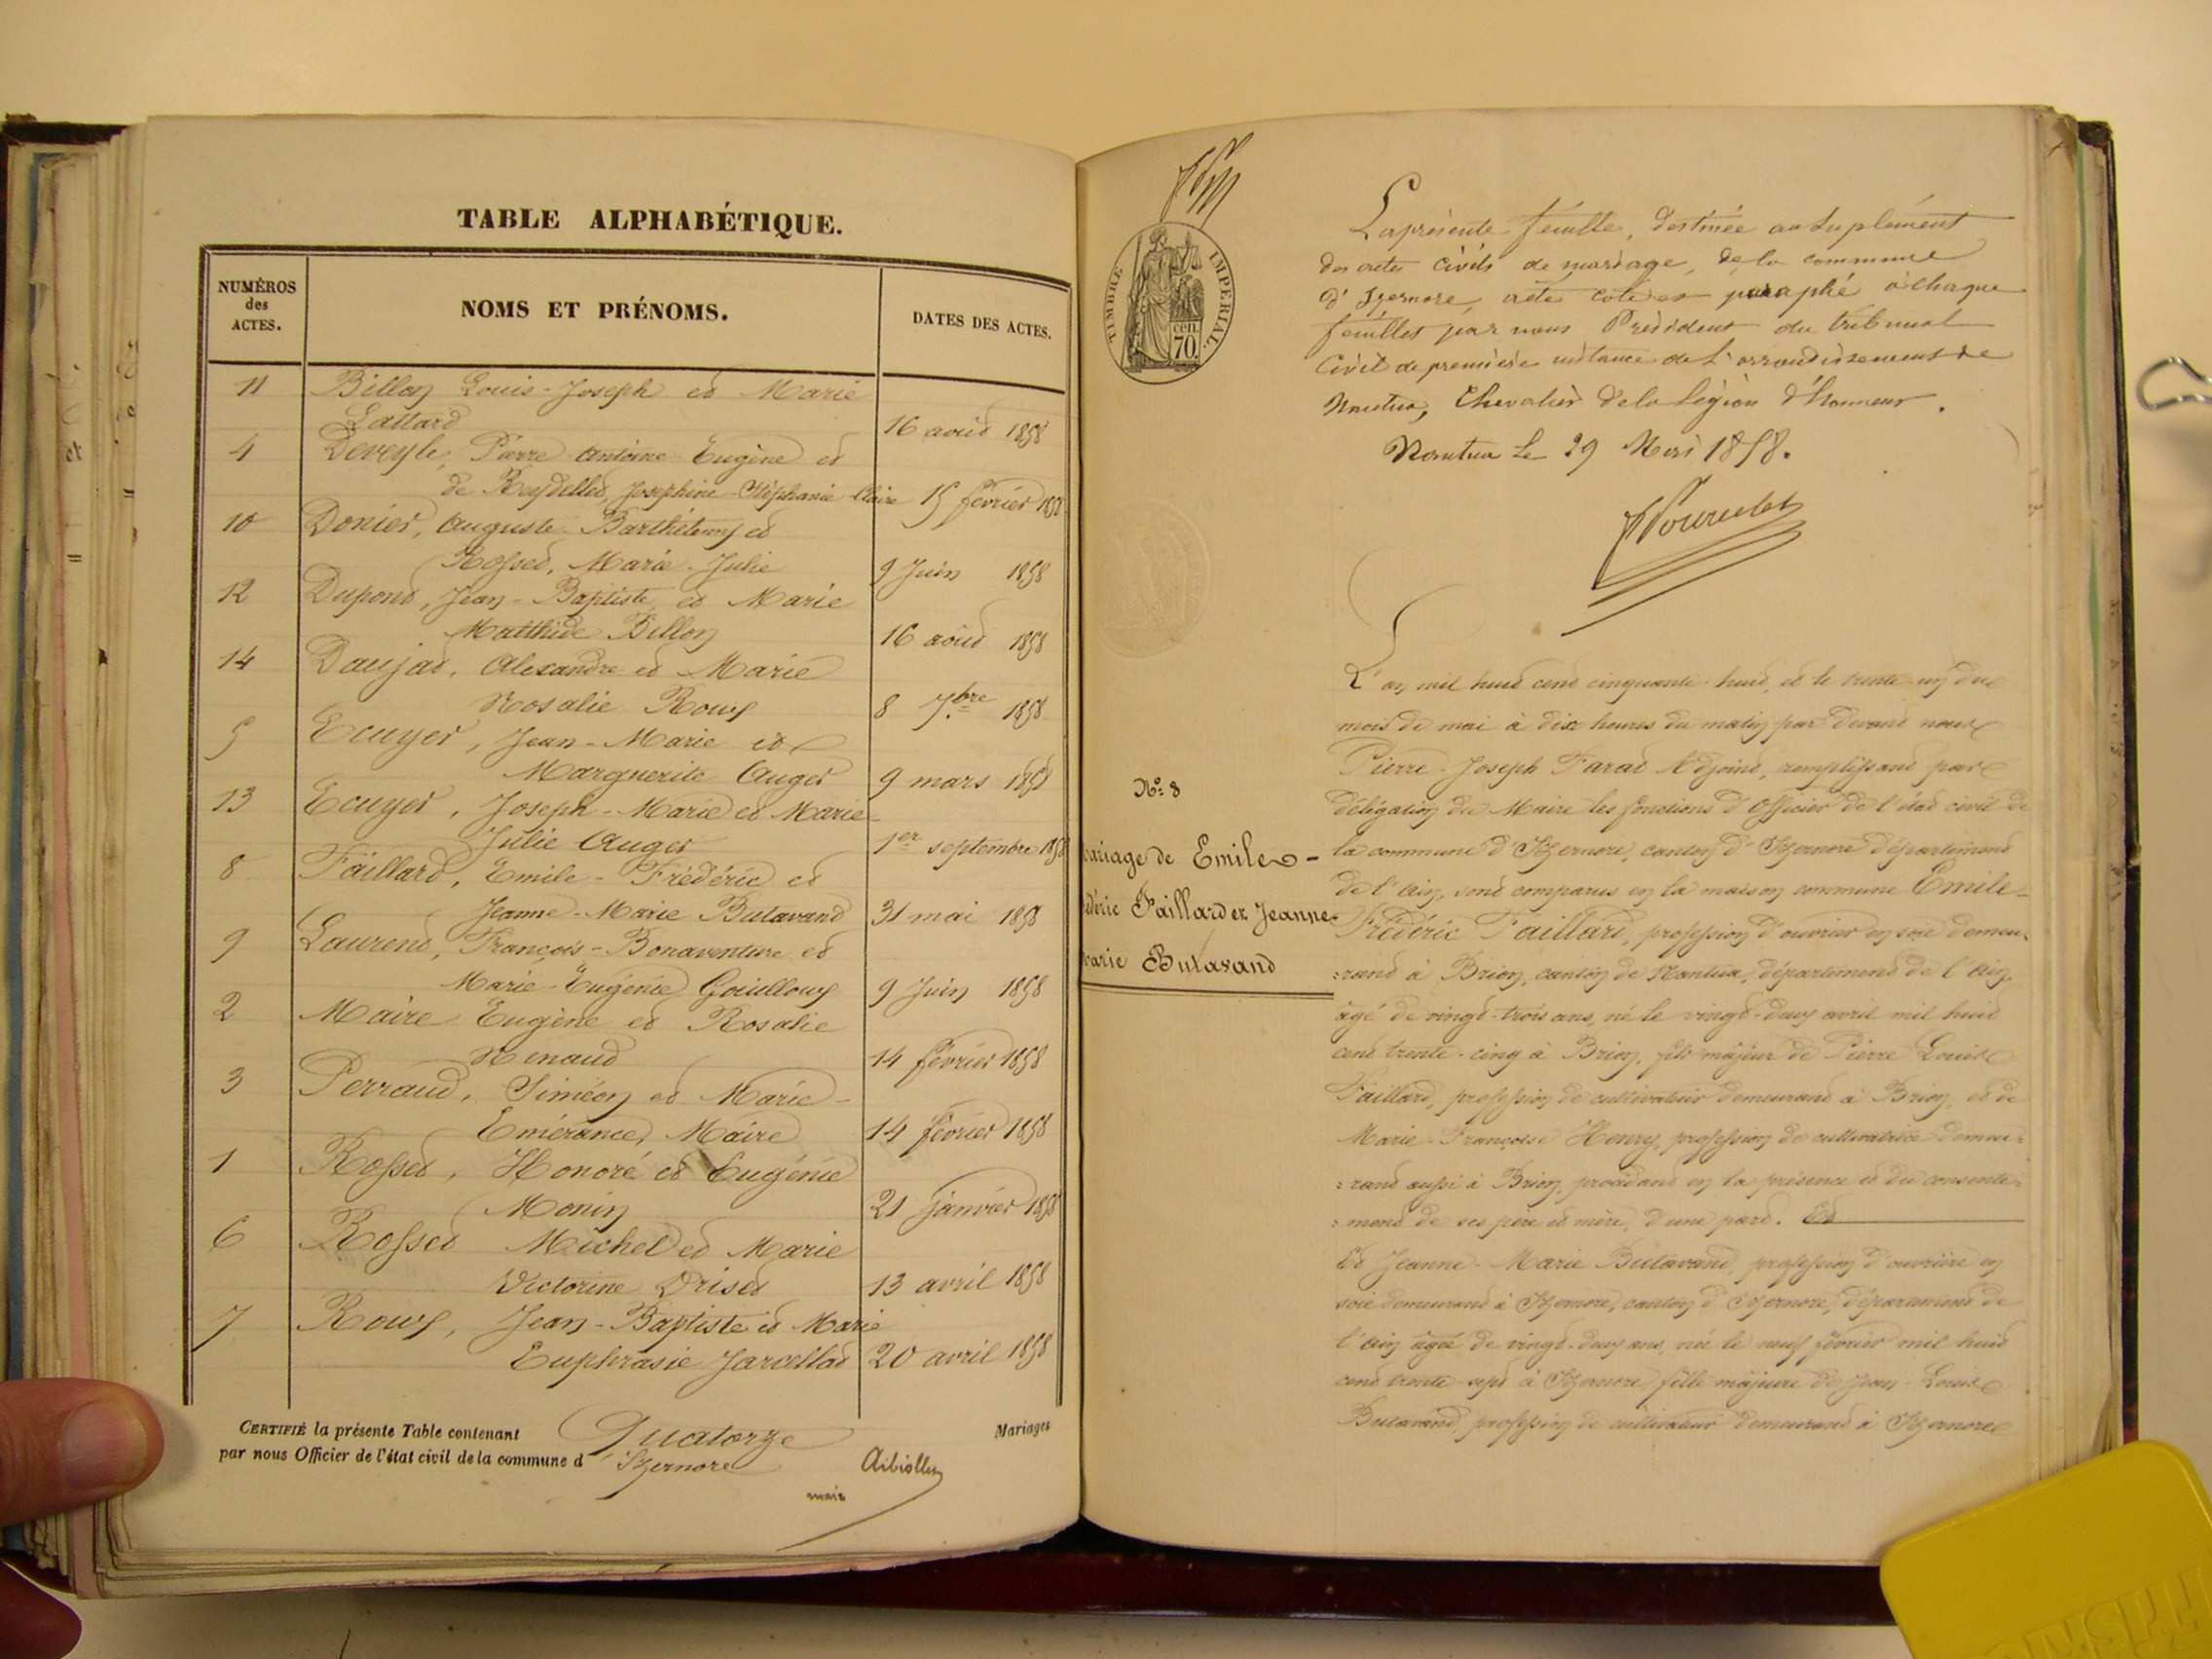 TABLE ALPHABÉTIQUE.
NUMÉROS des ACTES.
NOMS ET PRÉNOMS.
DATES DES ACTES.
11 Billon Louis-Joseph et Marie
Lattard 16 août 1858
4 Deveyle, Pierre Antoine Eugène et
de Reydellet, Josephine-Stéphanie Claire 15 février 1858
10 Donier, Auguste Barthélemy et
Rosset, Marie-Julie 9 Juin 1858
12 Dupont, Jean-Baptiste et Marie
Matthide Billon 16 août 1858
14 Daujat, Alexandre et Marie
Rosalie Roux 8 7.bre 1858
5 Ecuyer, Jean-Marie et
Marguerite Auger 9 mars 1858
13 Ecuyer, Joseph-Marie et Marie-
Julie Auger 1er septembre 1858
8 Faillard, Emile-Frédéric et
Jeanne-Marie Butavand 31 mai 1858
9 Laurent, François-Bonaventure et
Marie-Eugénie Gouilloux 9 Juin 1858
2 Maire Eugène et Rosalie
Renaud 14 février 1858
3 Perraud, Siméon et Marie-
Emérance, Maire 14 février 1858
1 Rosset, Honoré et Eugénie
Monin 21 janvier 1858
6 Rosset Michel et Marie
Victorine Driset 13 avril 1858
7 Roux, Jean-Baptiste et Marie
Euphrasie Jarcellat 20 avril 1858
CERTIFIÉ la présente Table contenant Quatorze Mariages
par nous Officier de l'état civil de la commune d'Izernore
maire
TIMBRE IMPÉRIAL.
cen. 70.
La présente feuille, destinée au suplément
des actes civils de mariage, de la commune
d'Izernore, a été coté et paraphé à chaque
feuillet par nous Président du tribunal
Civil de première instance de l'arrondissement de
Nantua, Chevalier de la Légion d'honneur.
Nantua Le 29 Mai 1858.
N.° 8
mariage de Emile-
édéric Faillard et Jeanne-
marie Butavand
L'an mil huit cent cinquante-huit, et le trente un du
mois de mai à dix heures du matin par devant nous
Pierre-Joseph Farat Adjoint, remplissant par
délégation du Maire les fonctions d'Officier de l'état civil de
la commune d'Izernore, canton d'Izernore département
de l'Ain, sont comparus en la maison commune Emile-
Frédéric Faillard, profession d'ouvrier en soie demeu-
:rant à Brion, canton de Nantua, département de l'Ain,
âgé de vingt-trois ans, né le vingt-deux avril mil huit
cent trente-cinq à Brion, fils majeur de Pierre Louis
Faillard, profession de cultivateur demeurant à Brion, et de
Marie-Françoise Henry, profession de cultivatrice demeu-
:rant aussi à Brion, procédant en la présence et du consente-
:ment de ses père et mère, d'une part. Et
Et Jeanne-Marie Butavand, profession d'ouvrière en
soie demeurant à Izernore, canton d'Izernore, département de
l'Ain âgée de vingt-deux ans, née le neuf février mil huit
cent trente-sept à Izernore, fille majeure de Jean-Louis
Butavand, profession de cultivateur demeurant à Izernore